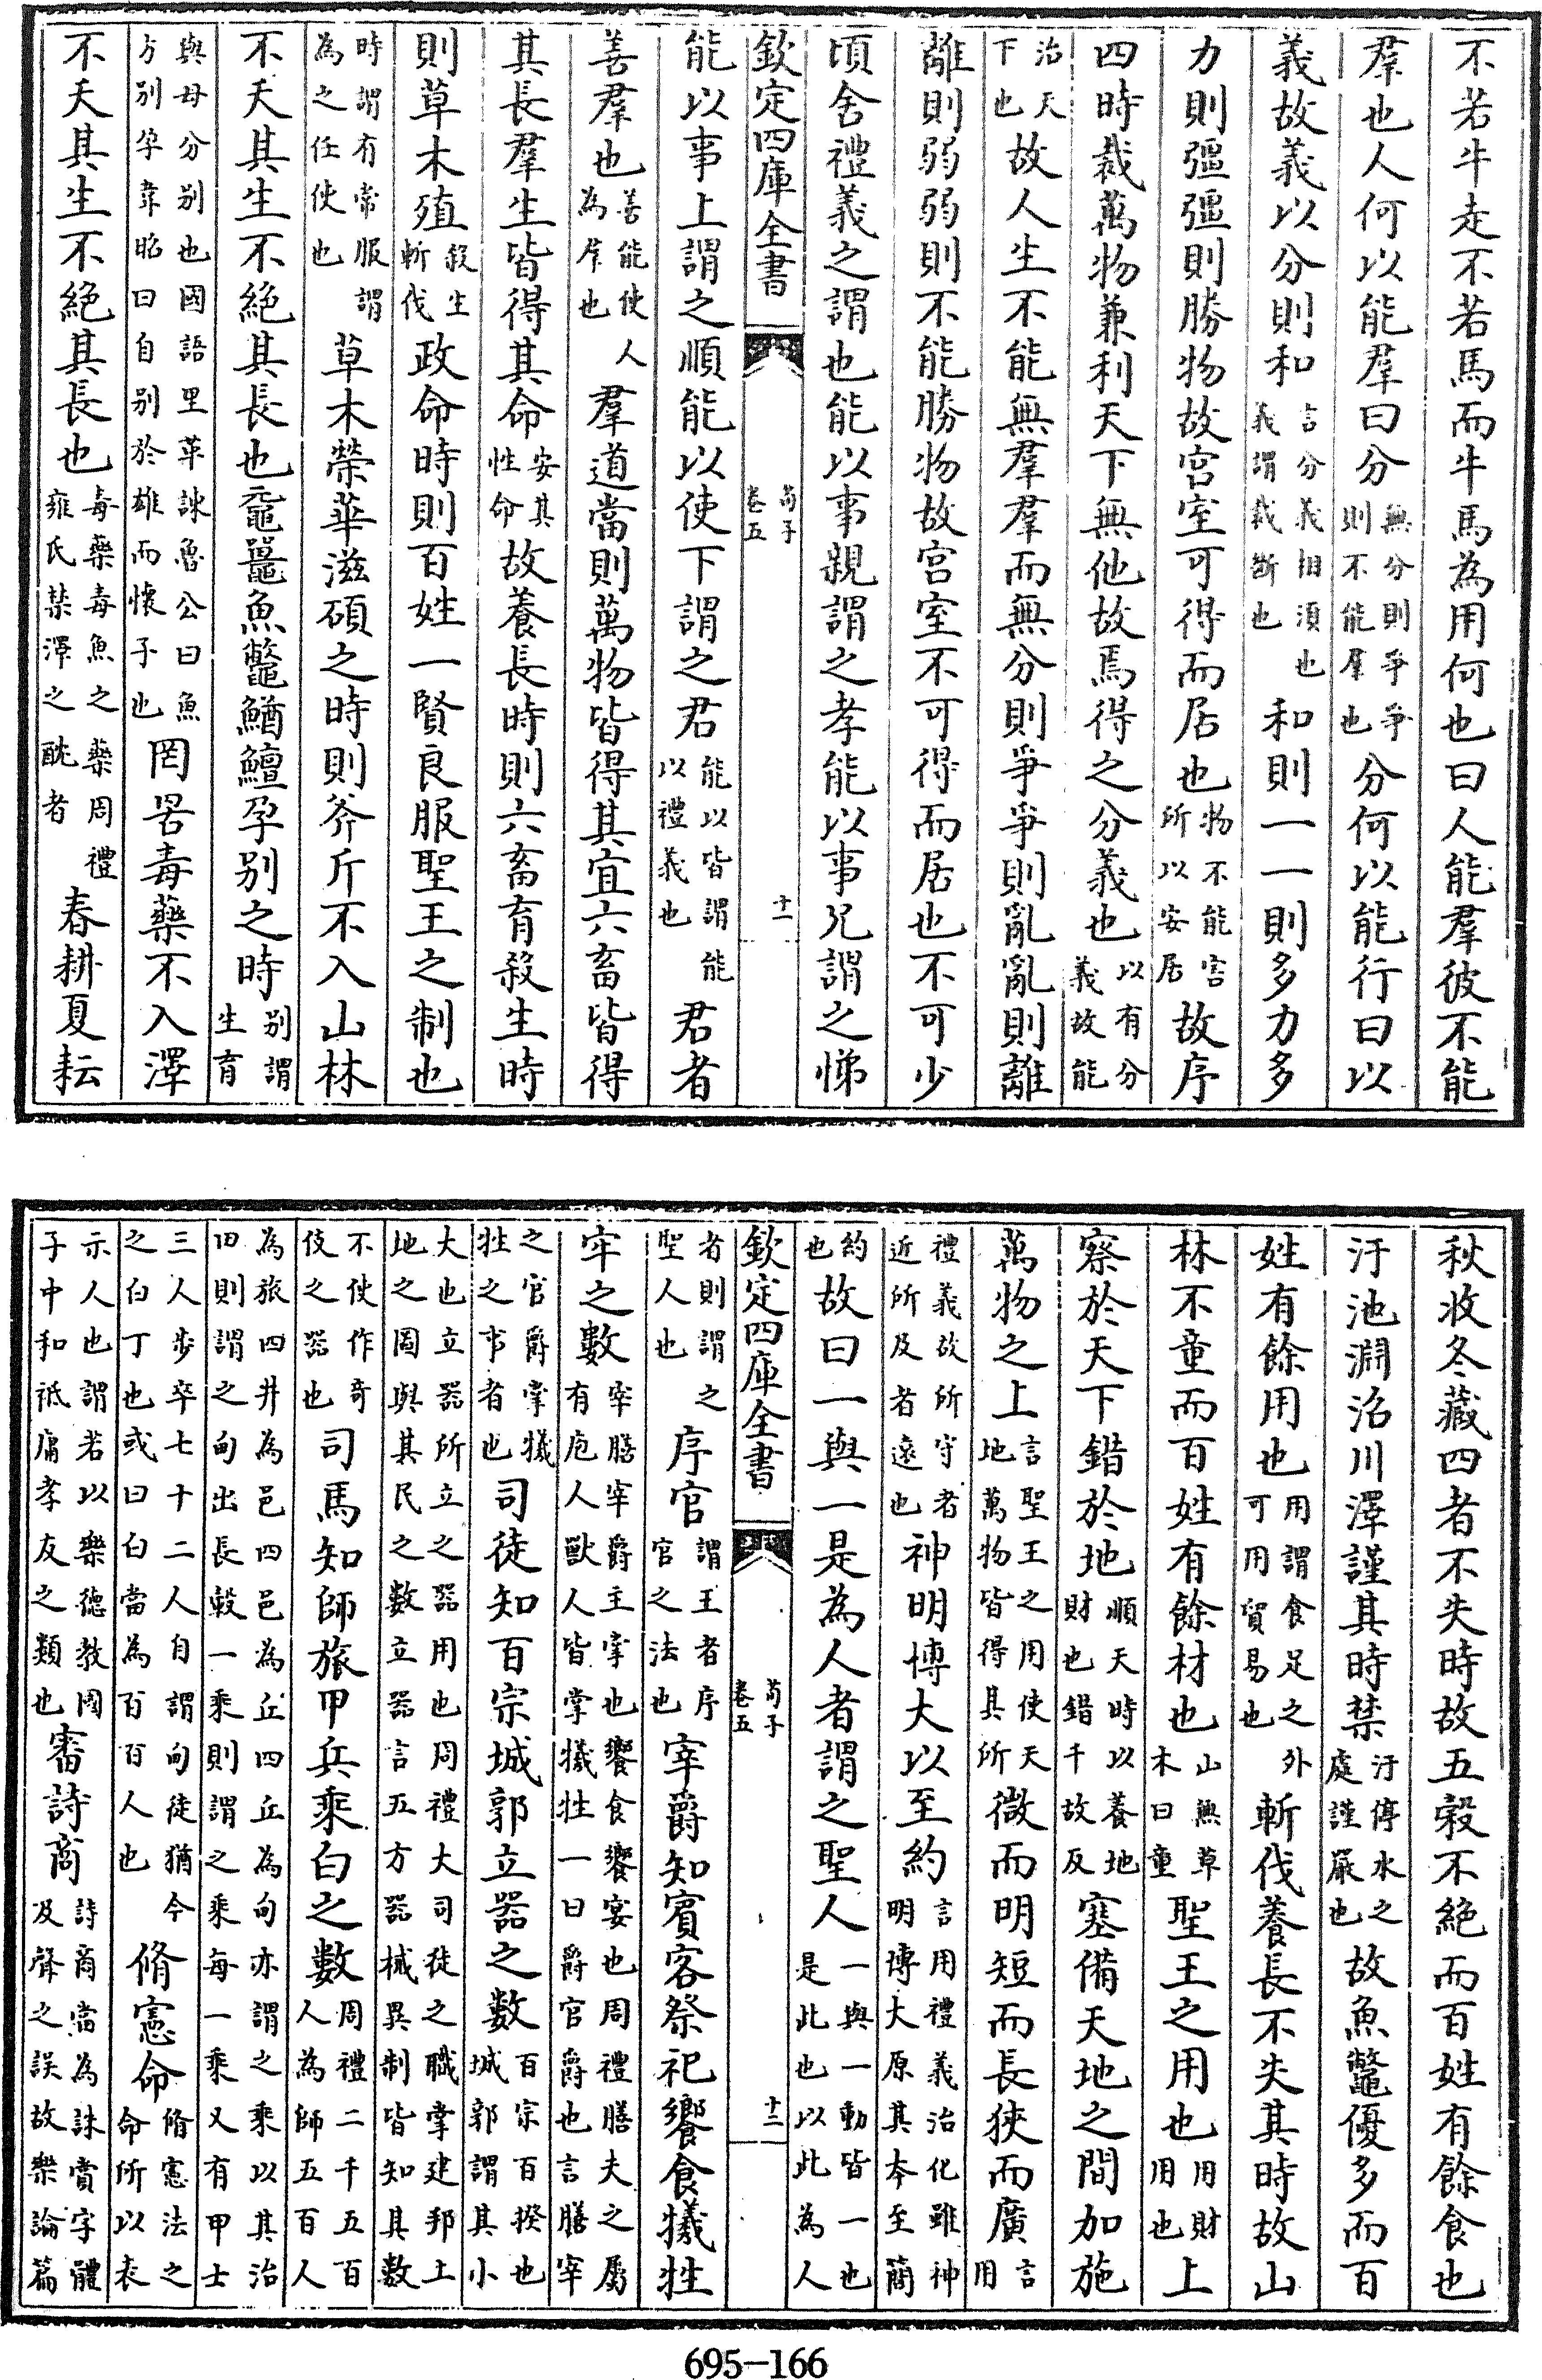 不若牛走不若馬而牛馬為用何也曰人能羣彼不能
羣也人何以能羣曰分無分則爭爭則不能羣也分何以能行曰以
義故義以分則和言分義相須也義謂裁斷也和則一一則多力多
力則彊彊則勝物故宮室可得而居也物不能害所以安居故序
四時裁萬物兼利天下無他故焉得之分義也以有分義故能
治天下也故人生不能無羣羣而無分則爭爭則亂亂則離
離則弱弱則不能勝物故宮室不可得而居也不可少
頃舍禮義之謂也能以事親謂之孝能以事兄謂之悌
欽定四庫全書 荀子卷五 十二
能以事上謂之順能以使下謂之君能以皆謂能以禮義也君者
善羣也善能使人為羣也羣道當則萬物皆得其宜六畜皆得
其長羣生皆得其命安其性命故養長時則六畜育殺生時
則草木殖殺生斬伐政命時則百姓一賢良服聖王之制也
時謂有常服謂為之任使也草木榮華滋碩之時則斧斤不入山林
不夭其生不絕其長也黿鼉魚鼈鰌鱣孕別之時別謂生育
與母分別也國語里革諫魯公曰魚方別孕韋昭曰自別於雄而懷子也罔罟毒藥不入澤
不夭其生不絕其長也毒藥毒魚之藥周禮雍氏禁澤之酖者春耕夏耘
秋收冬藏四者不失時故五穀不絕而百姓有餘食也
汙池淵沼川澤謹其時禁汙停水之處謹嚴也故魚鼈優多而百
姓有餘用也用謂食足之外可用貿易也斬伐養長不失其時故山
林不童而百姓有餘材也山無草木曰童聖王之用也用財用也上
察於天下錯於地順天時以養地財也錯千故反塞備天地之間加施
萬物之上言聖王之用使天地萬物皆得其所微而明短而長狹而廣言用
禮義故所守者近所及者遠也神明博大以至約言用禮義治化雖神明博大原其本至簡
約也故曰一與一是為人者謂之聖人一與一動皆一也是此也以此為人
欽定四庫全書 荀子卷五 十三
者則謂之聖人也序官謂王者序官之法也宰爵知賓客祭祀饗食犧牲
牢之數宰膳宰爵主掌也饗食饗宴也周禮膳夫之屬有庖人獸人皆掌犧牲一曰爵官爵也言膳宰
之官爵掌犧牲之事者也司徒知百宗城郭立器之數百宗百揆也城郭謂其小
大也立器所立之器用也周禮大司徒之職掌建邦土地之圖與其民之數立器言五方器械異制皆知其數
不使作奇伎之器也司馬知師旅甲兵乘白之數周禮二千五百人為師五百人
為旅四井為邑四邑為丘四丘為甸亦謂之乘以其治田則謂之甸出長轂一乘則謂之乘每一乘又有甲士
三人步卒七十二人自謂甸徒猶今之白丁也或曰白當為百百人也脩憲命脩憲法之命所以表
示人也謂若以樂德教國子中和祗庸孝友之類也審詩商詩商當為誅賞字體及聲之誤故樂論篇
695-166